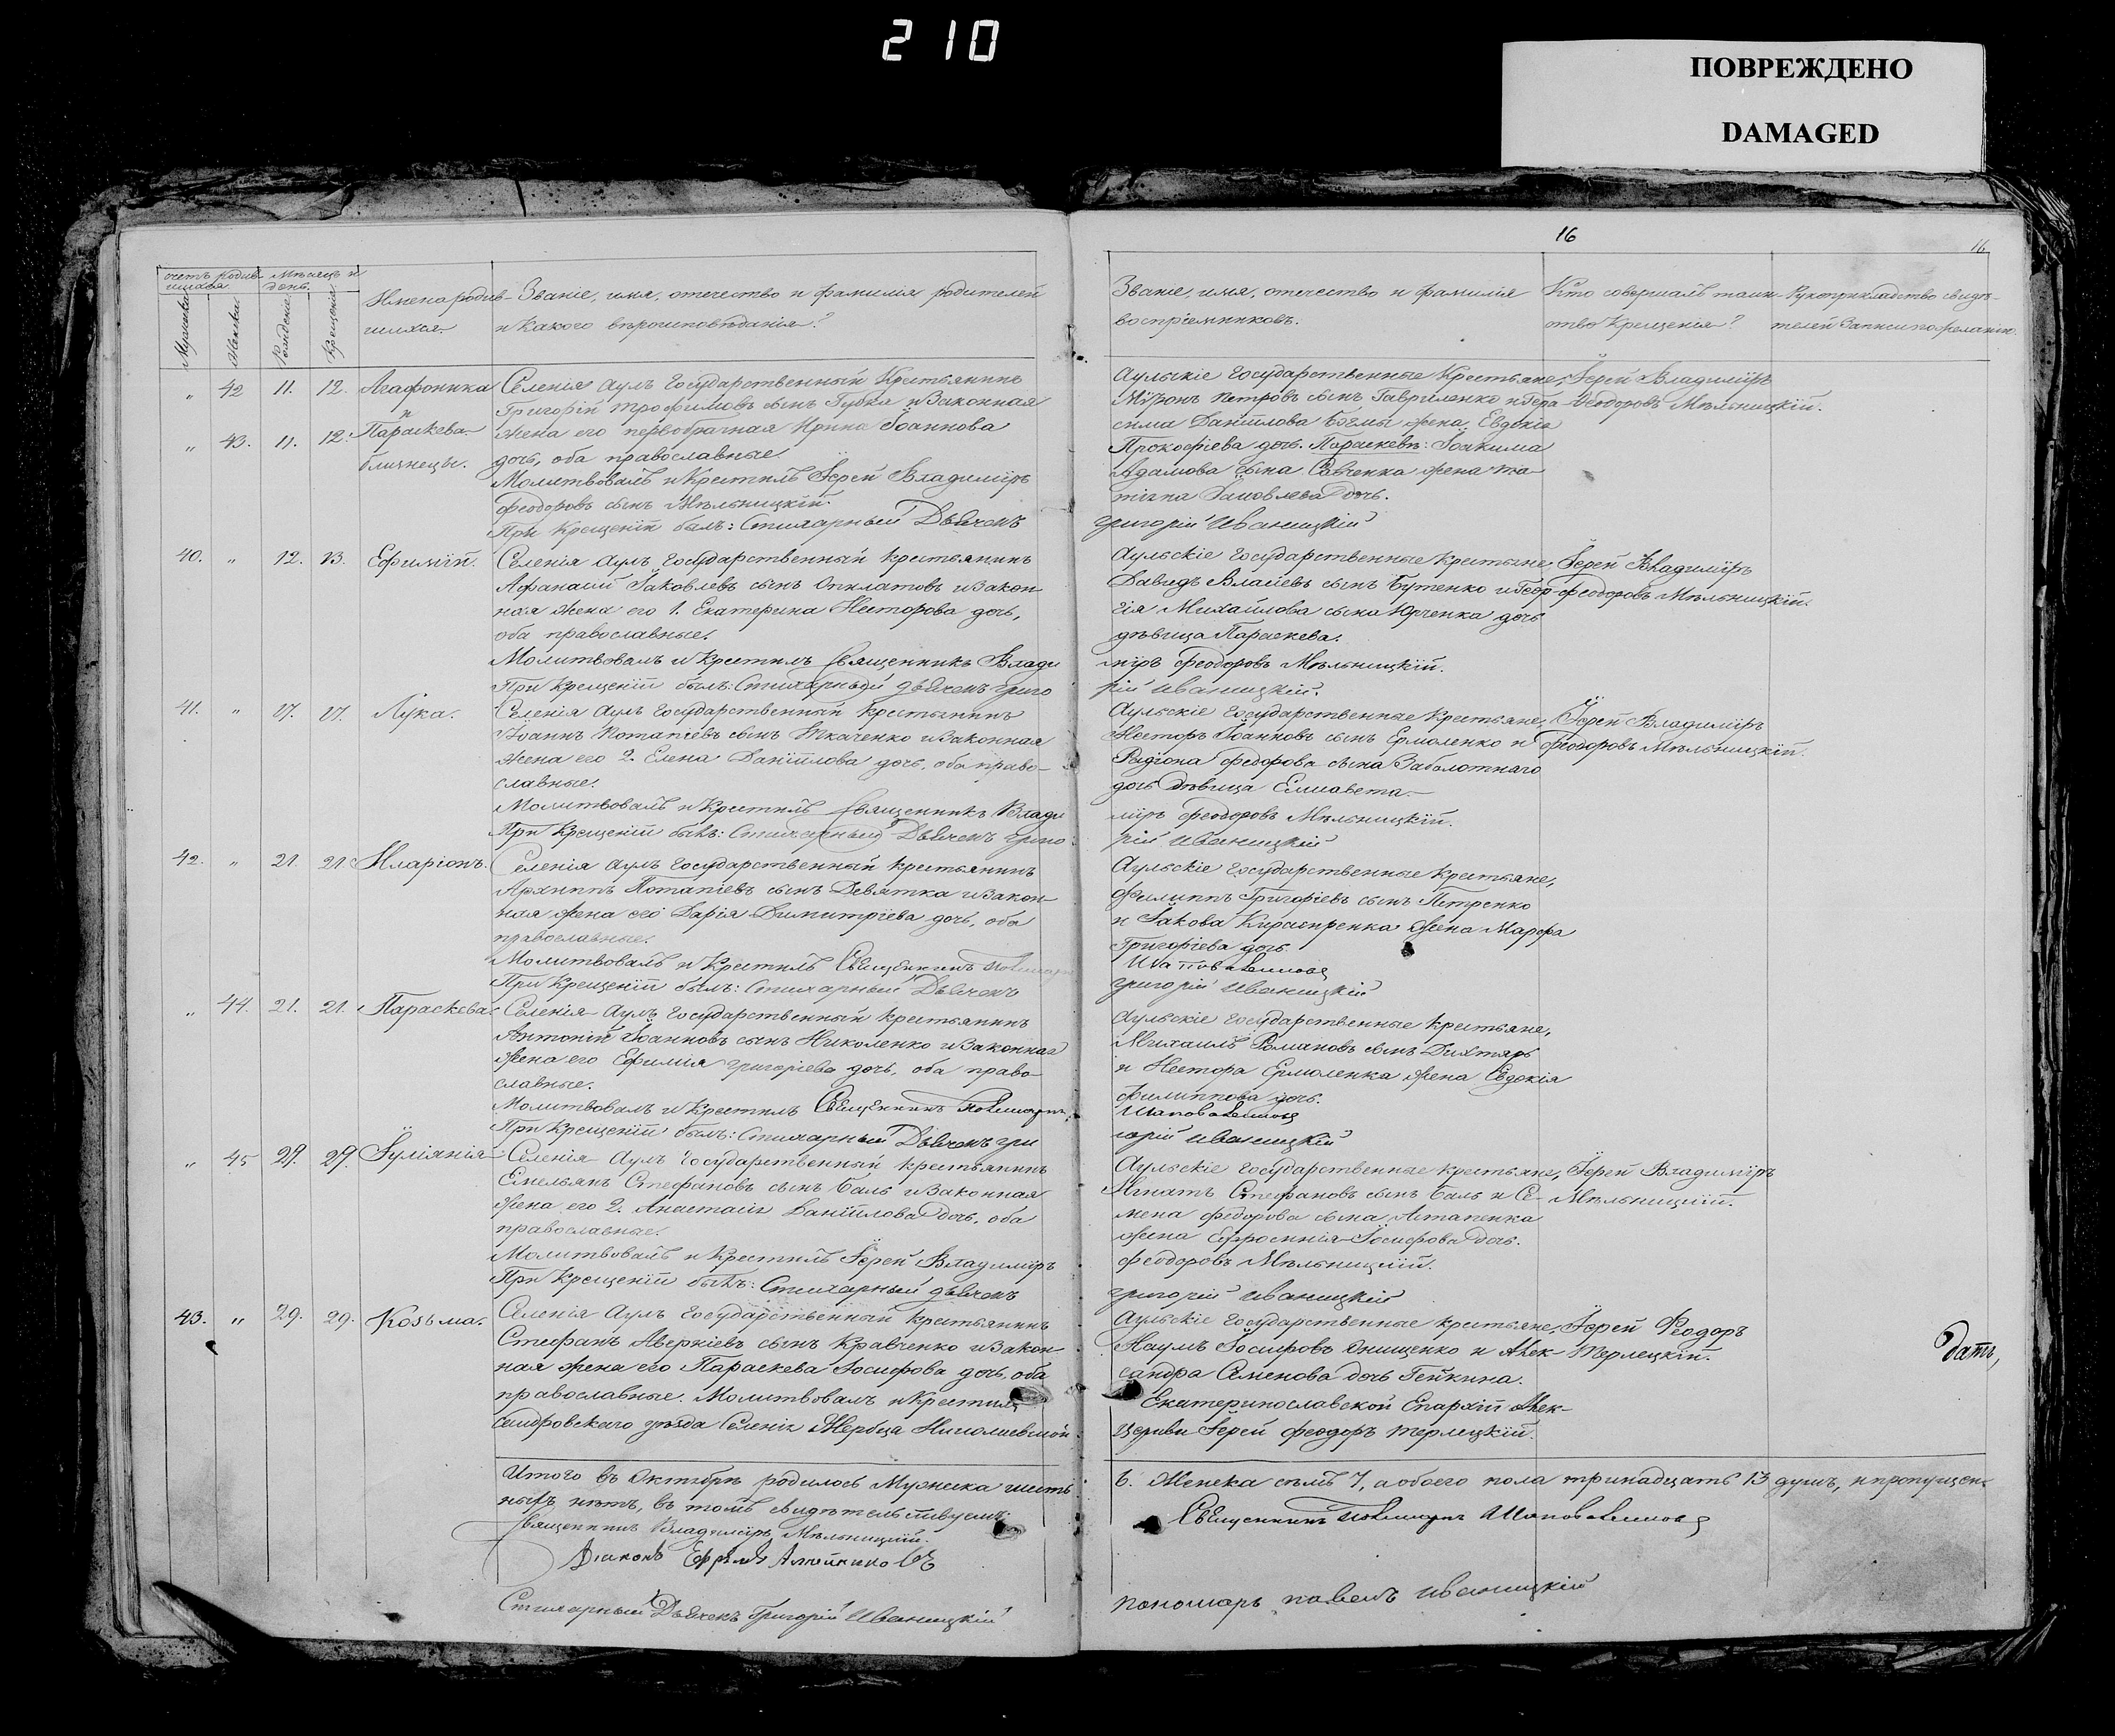 210
ПОВРЕЖДЕНО
DAMAGED
16
16
Счетъ родив- Мѣсяцъ и
шихся. день.
Мужеска Женска Рожденіе Крещенія
Имена родив-
шихся.
Званіе, имя, отечество и фамилія родителей
и какого вѣроисповѣданія?
Званіе, имя, отечество и фамилія
воспріемниковъ.
Кто совершалъ таин-
ство крещенія?
Рукоприкладство свидѣ-
телей записи по желанію.
„ 42 11. 12. Агафоника
и
„ 43. 11. 12. Параскева.
близнецы.
Селенія Аулъ Государственный Крестьянинъ
Григорій Трофимовъ сынъ Губка и законная
жена его первобрачная Ирина Іоаннова
дочь, оба православные.
Молитвовалъ и Крестилъ Іерей Владиміръ
Феодоровъ сынъ Мѣльницкій.
При Крещеніи былъ: Стихарный Дьячекъ
Аульскіе Государственные Крестьяне,
Мѵронъ Петровъ сынъ Гавриленко и Гера-
сима Даніилова жена Евдокія
Прокофіева дочь. Параскевѣ: Іоакима
Адамова сына Савченка жена Та-
тіана Іаковлева дочь.
Григорій Иваницкій
Іерей Владиміръ
Феодоровъ Мѣльницкій.
40. „ 12. 13. Ефимій.
Селенія Аулъ Государственный крестьянинъ
Афанасій Іаковлевъ сынъ и закон-
ная жена его 1. Екатерина Несторова дочь,
оба православные.
Молитвовалъ и Крестилъ Священникъ Влади
При Крещеніи былъ: Стихарный Дьячекъ Григо
Аульскіе Государственные Крестьяне,
Давидъ Власіевъ сынъ Бутенко и Геор-
гія Михайлова сына Юрченка дочь
дѣвица Параскева.
міръ Феодоровъ Мѣльницкій.
рій Иваницкій.
Іерей Владиміръ
Феодоровъ Мѣльницкій.
41. „ 17. 17. Лука.
Селенія Аулъ Государственный крестьянинъ
Іоаннъ Потапіевъ сынъ Ткаченко и законная
жена его 2. Елена Даніилова дочь, оба право-
славные.
Молитвовалъ и Крестилъ Священникъ Влади
При Крещеніи былъ: Стихарный Дьячекъ Григо
Аульскіе Государственные Крестьяне,
Несторъ Іоанновъ сынъ Ермоленко и
Родіона Федорова сына Заболотнаго
дочь дѣвица Елисавета.
міръ Феодоровъ Мѣльницкій.
рій Иваницкій
Іерей Владиміръ
Феодоровъ Мѣльницкій.
42. „ 21. 21. Иларіонъ.
Селенія Аулъ Государственный крестьянинъ
Архиппъ Потапіевъ сынъ Девятка и закон-
ная жена его Дарія Димитріева дочь, оба
православные.
Молитвовалъ и Крестилъ Священникъ
При Крещеніи былъ: Стихарный Дьячекъ
Аульскіе Государственные Крестьяне,
Филиппъ Григоріевъ сынъ Петренко
и Іакова жена Марфа
Григоріева дочь
Григорій Иваницкій
„ 44. 21. 21. Параскева.
Селенія Аулъ Государственный крестьянинъ
Антоній Іоанновъ сынъ Николенко и законная
жена его Ефимія Григоріева дочь, оба право-
славные.
Молитвовалъ и Крестилъ Священникъ
При Крещеніи былъ: Стихарный Дьячекъ Гри
Аульскіе Государственные Крестьяне,
Михаилъ Романовъ сынъ Дихтяръ
и Нестора Ермоленка жена Евдокія
Филиппова дочь.
горій Иваницкій
„ 45 29. 29. Іуліянія
Селенія Аулъ Государственный крестьянинъ
Емельянъ Стефановъ сынъ Баль и законная
жена его 2. Анастасія Даніилова дочь, оба
православные.
Молитвовалъ и Крестилъ Іерей Владиміръ
При Крещеніи былъ: Стихарный Дьячекъ
Аульскіе Государственные крестьяне,
Игнатъ Стефановъ сынъ Баль и Се-
мена Федорова сына Астапенка
жена Ефросинія Іосифова дочь.
Феодоровъ Мѣльницкій.
Григорій Иваницкій
Іерей Владиміръ
Мѣльницкій.
43. „ 29. 29. Козьма.
Селенія Аулъ Государственный крестьянинъ
Стефанъ Аверкіевъ сынъ Кравченко и закон-
ная жена его Параскева Іосифова дочь, оба
православные. Молитвовалъ и Крестилъ
сандровскаго уѣзда Селенія Жеребца Николаевской
Аульскіе Государственные крестьяне,
Наумъ Іосифовъ Онищенко и Алек-
сандра Семенова дочь Гейкина.
Екатеринославской Епархіи Алек-
Церкви Іерей Феодоръ Терлецкій.
Іерей Феодоръ
Терлецкій.
датъ,
Итого въ Октябрѣ родилось Мужеска шесть
6. Женска семь 7, а обоего пола тринадцать 13 душъ, и пропущен-
ныхъ нѣтъ, въ томъ свидѣтельствуемъ:
Священникъ Владиміръ Мѣльницкій.
Діаконъ Ефремъ
Стихарный Дьячекъ Григорій Иваницкій
Священникъ
Пономарь Павелъ Иваницкій